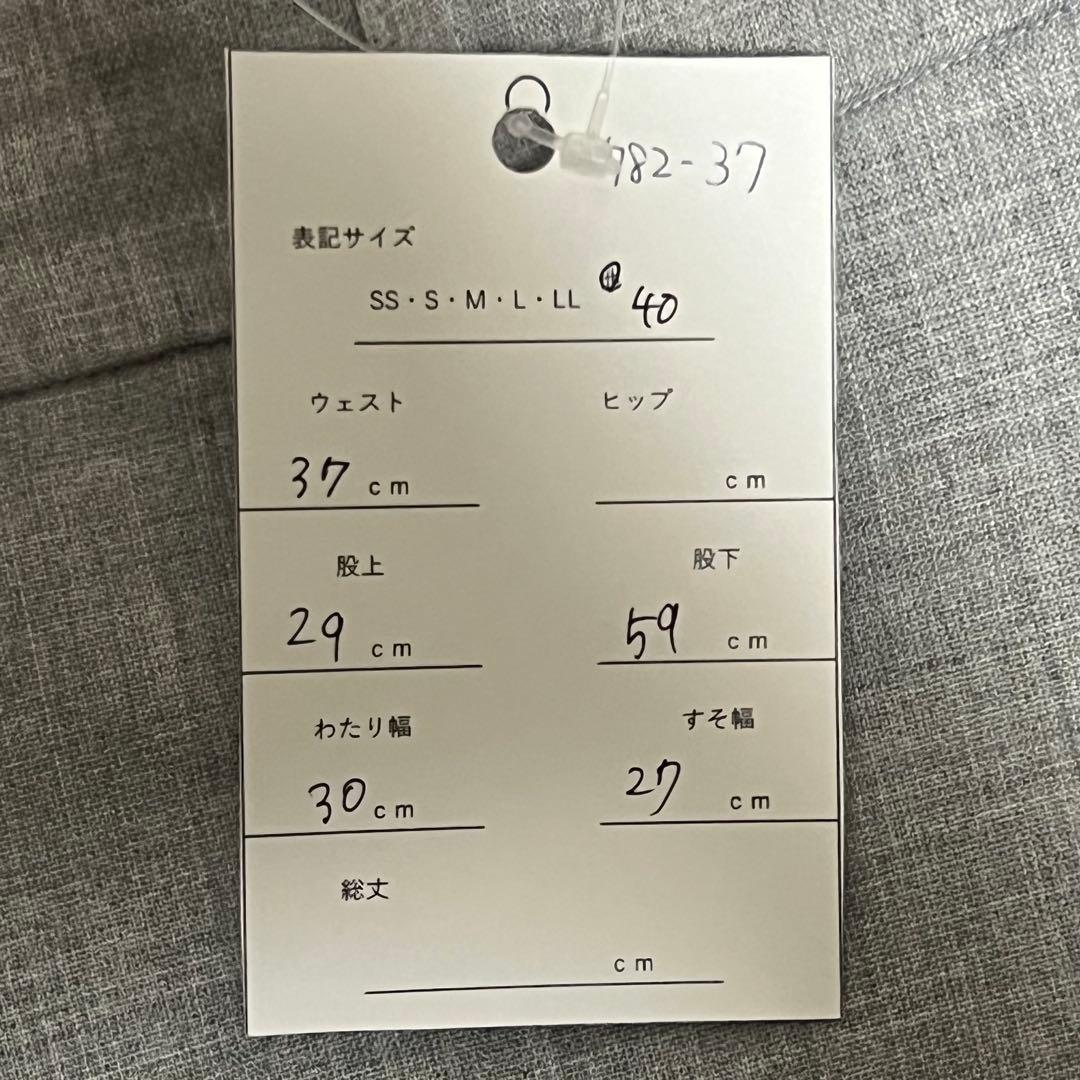 782-37
表記サイズ
SS・S・M・L・LL 40
ウェスト ヒップ
37 cm cm
股上 股下
29 cm 59 cm
わたり幅 すそ幅
30 cm 27 cm
総丈
cm